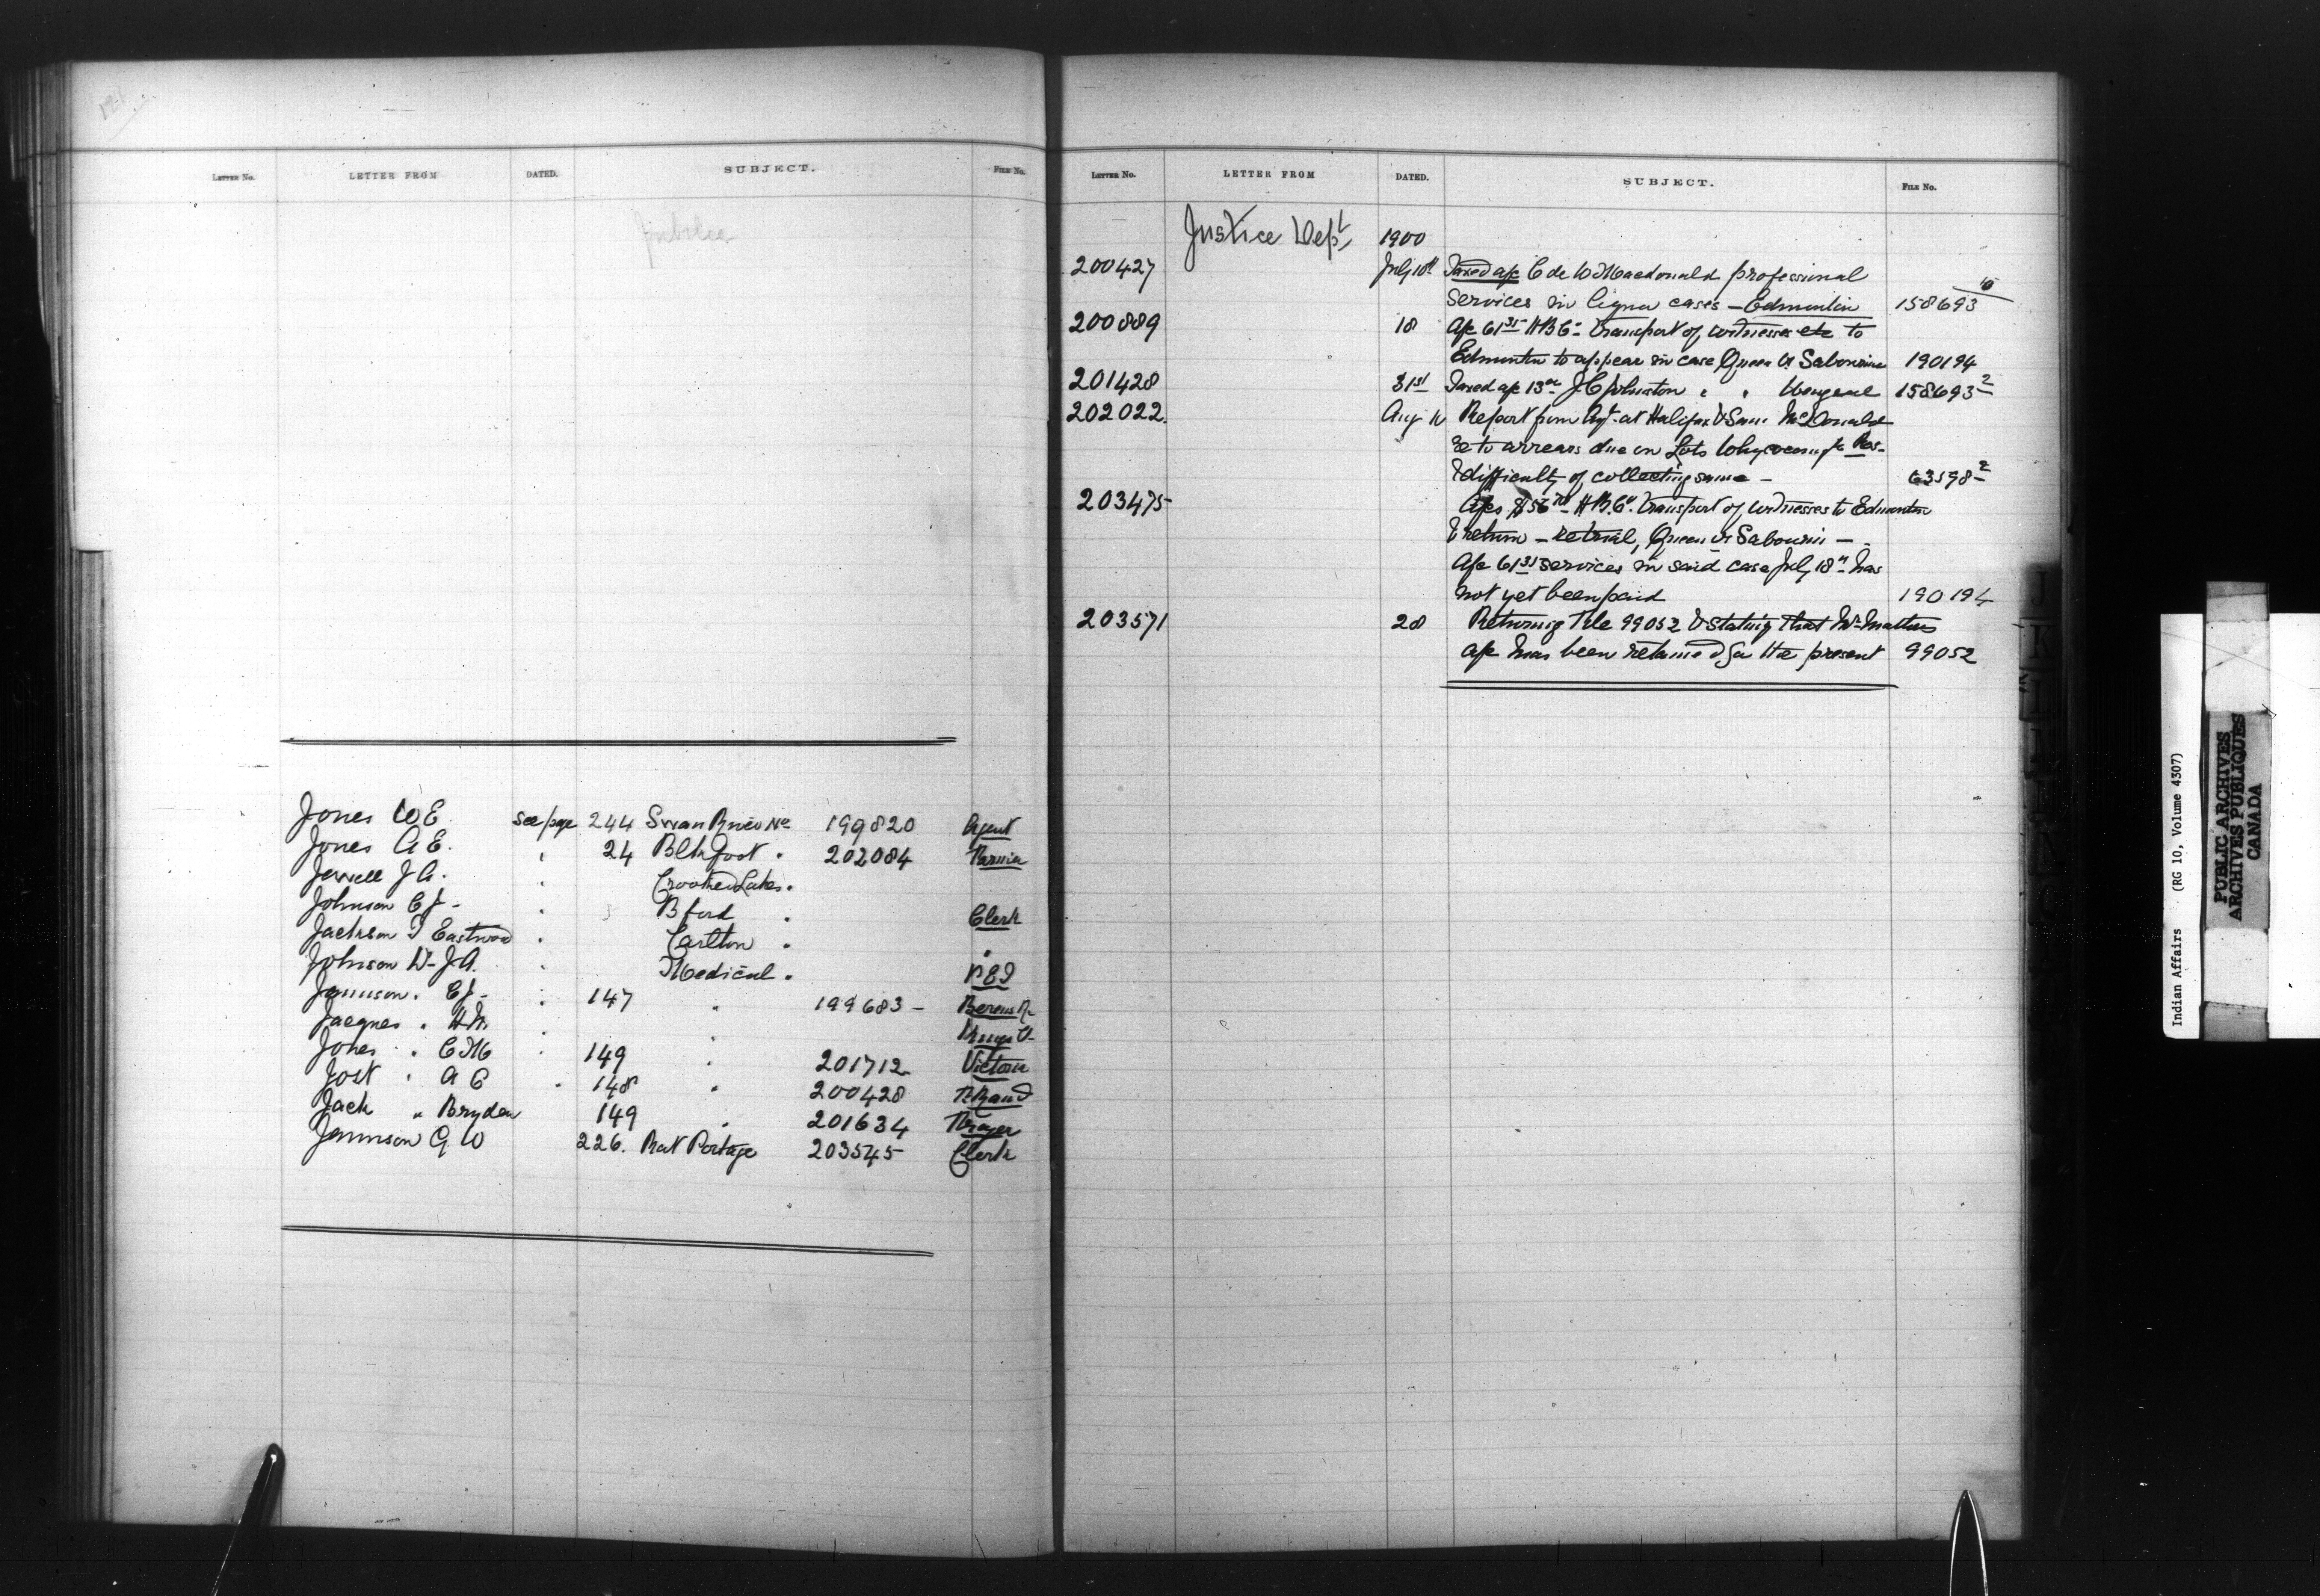 LETTER No. LETTER FROM DATED. SUBJECT. FILE No.
Jubilee
Jones W E. see page 244 Swan River 199820 Agent
Jones A E. " 24 Blkfoot " 202084
Jewell J A. " Crooked Lakes "
Johnson C J - " Bford " Clerk
Jackson T Eastwood " Carlton " "
Johnson Dr J A. " Medical " P E I
Jamieson " E J - " 147 " 199683 - Berens R
Jacques " H M. " "
Jones " C M " 149 " 201712 Victoria
Jost " A C " 148 " 200428
Jack " Bryden 149 " 201634
Jemmison G W 226. Rat Portage 203545 Clerk
LETTER No. LETTER FROM DATED. SUBJECT. FILE No.
Justice Dept 1900
200427 July 10th Taxed a/c C de W Macdonald professional
services in liquor cases - Edmonton 158693
200889 18 a/c 61 35 H B Co transport of witnesses etc to
Edmonton to appear in case Queen vs Sabourin 190194
201428 31st Taxed a/c 13 J C Johnston " " 158693 2
202022. Aug Report from Agt at Halifax & Sam McDonald
re to arrears due on Lots Whycocomagh Res-
& difficulty of collecting same - 63598 2
203475 a/cs $56 H.B.Co. transport of witnesses to Edmonton
& return - retrial, Queen vs Sabourin -
a/c 61 35 services in said case July 18th has
not yet been paid 190194
203571 28 Returning File 99052 & stating that Mr
a/c has been retained for the present 99052
Indian Affairs (RG 10, Volume 4307)
PUBLIC ARCHIVES
ARCHIVES PUBLIQUES
CANADA